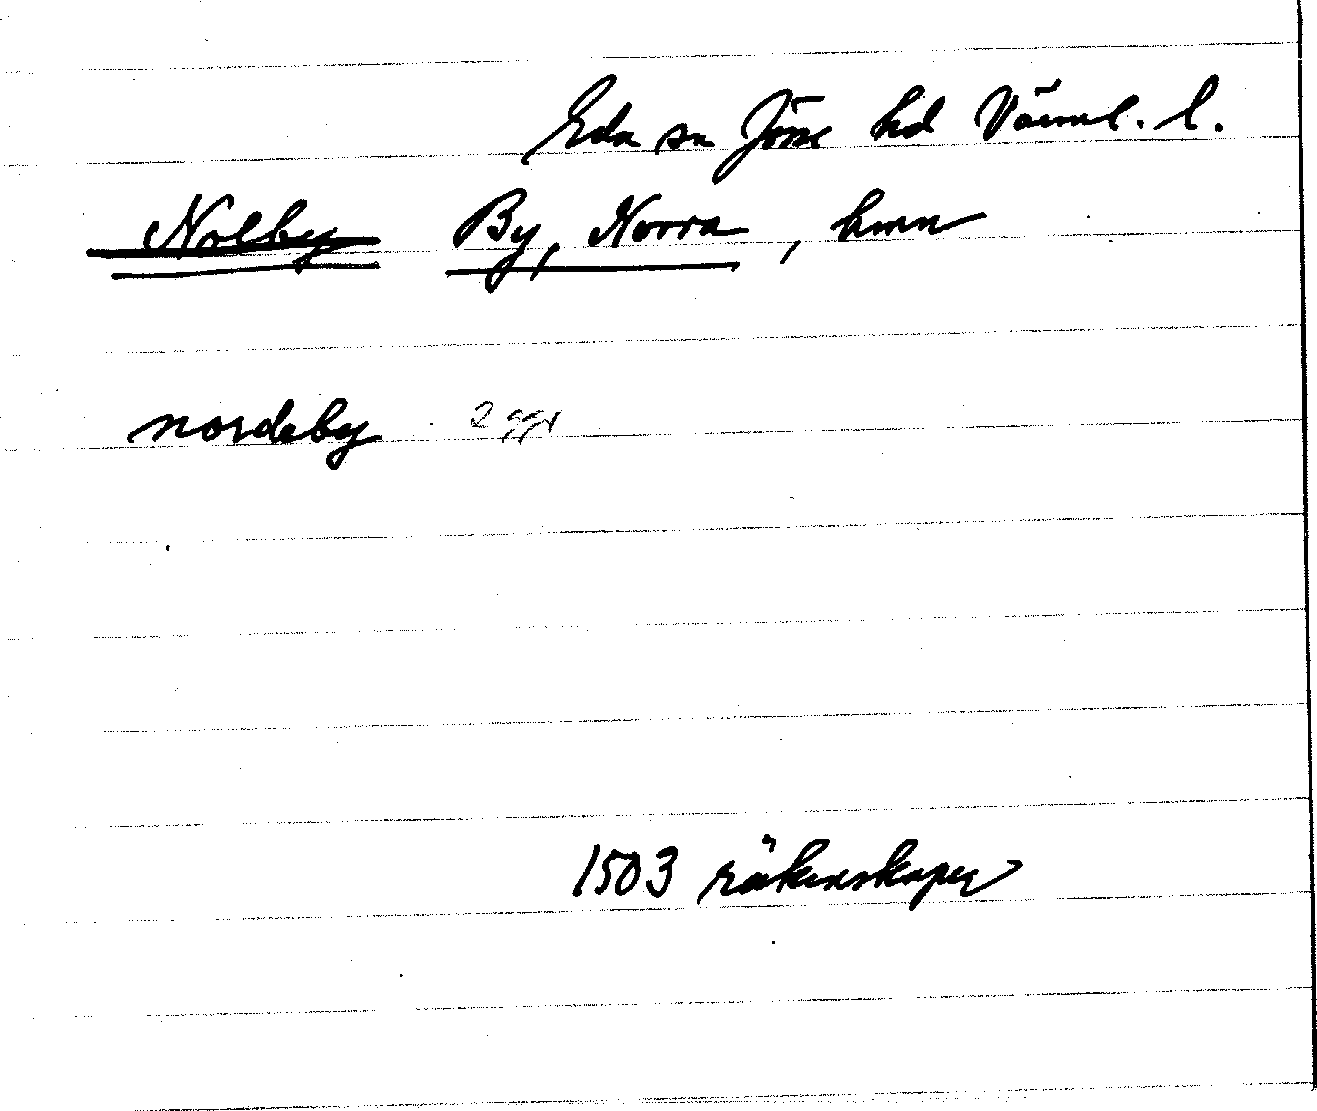 Eda sn Jösse hd Värml. l.
Nolby By, Norra, hmn
nordeby 2 ggr
1503 räkenskaper